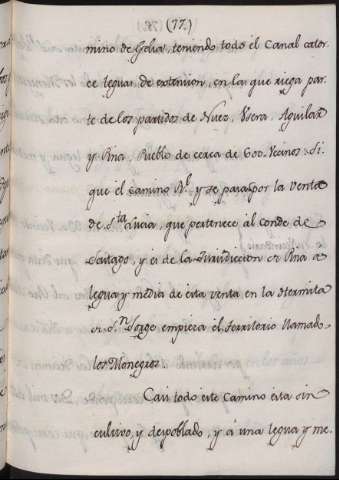 (77.)
mino de Gelsa, teniendo todo el Canal cator
ce leguas de extension, en la que riega par
te de los partidos de Nuez, Vsera, Aguilar
y Pina, Pueblo de cerca de 600. Vecinos. Si
gue el camino Rl. y se pasa por la Venta
de Sta. Lucia, que pertenece al conde de
Sastago, y es de la Jurisdiccion de Pina a
legua y media de esta venta en la Hermita
de Sn. Jorge empieza el territorio llamado
los Monegros.
Casi todo este Camino esta sin
cultivo, y despoblado, y á una legua y me.